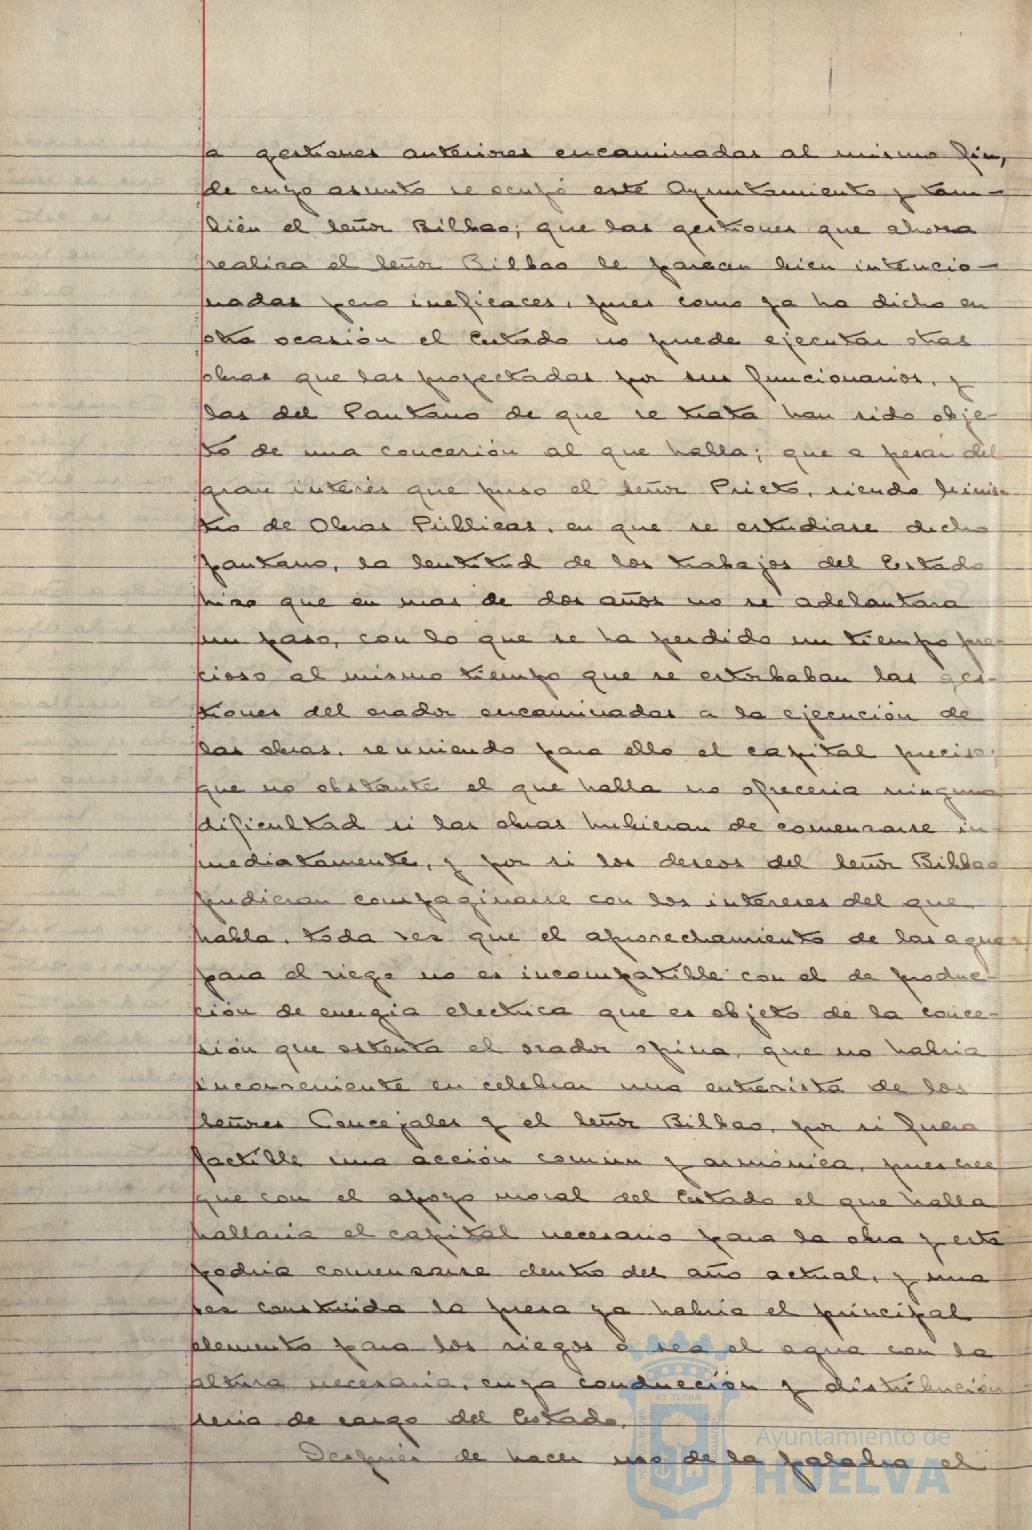 a gestiones anteriores encaminadas al mismo fin,
de cuyo asunto se ocupó este Ayuntamiento y tam-
bién el señor Bilbao; que las gestiones que ahora
realiza el señor Bilbao le parecen bien intencio-
nadas pero ineficaces, pues como ya ha dicho en
otra ocasión el Estado no puede ejecutar otras
obras que las proyectadas por sus funcionarios, y
las del Pantano de que se trata han sido obje-
to de una concesión al que habla; que a pesar del
gran interés que puso el señor Prieto, siendo Minis-
tro de Obras Públicas, en que se estudiase dicho
pantano, la lentitud de los trabajos del Estado
hizo que en mas de dos años no se adelantara
un paso, con lo que se ha perdido un tiempo pre-
cioso al mismo tiempo que se estorbaban las ges-
tiones del orador encaminadas a la ejecución de
las obras, reuniendo para ello el capital preciso;
que no obstante el que habla no ofreceria ninguna
dificultad si las obras hubieran de comenzarse in-
mediatamente, y por si los deseos del señor Bilbao
pudieran compaginarse con los intereses del que
habla, toda vez que el aprovechamiento de las aguas
para el riego no es incompatible con el de produc-
ción de energia electrica que es objeto de la conce-
sión que ostenta el orador opina, que no habria
inconveniente en celebrar una entrevista de los
señores Concejales y el señor Bilbao, por si fuera
factible una acción común y armónica, pues cree
que con el apoyo moral del Estado el que habla
hallaria el capital necesario para la obra y esta
podria comenzarse dentro del año actual, y una
vez construida la presa ya habria el principal
elemento para los riegos o sea el agua con la
altura necesaria, cuya conducción y distribución
seria de cargo del Estado.
Después de hacer uso de la palabra el
Ayuntamiento de
HUELVA